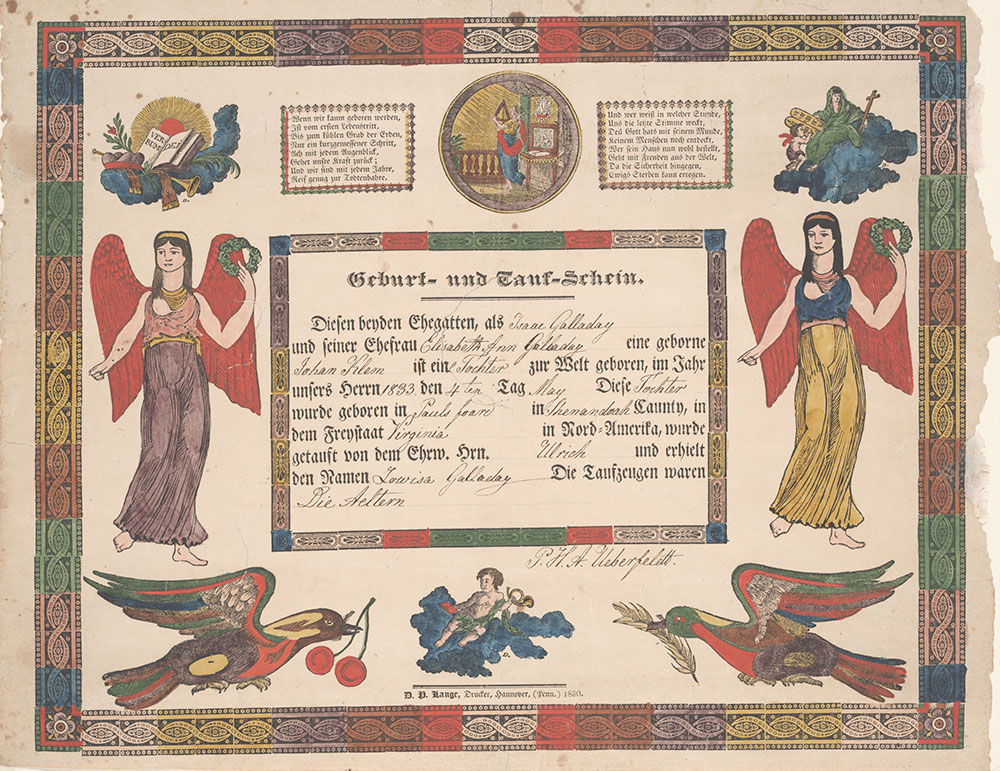 VER
BUM DEI
D.
Wenn wir kaum geboren werden,
Ist vom ersten Lebenstritt,
Bis zum kühlen Grab der Erden,
Nur ein kurzgemessener Schritt,
Ach mit jedem Augenblick,
Gehet unsre Kraft zurück;
Und wir sind mit jedem Jahre,
Reif genug zur Todtenbahre.
Und wer weiß in welcher Stunde,
Uns die letzte Stimme weckt,
Den Gott hats mit seinem Munde,
Keinem Menschen noch entdeckt.
Wer sein Haus nun wohl bestellt,
Geht mit Freuden aus der Welt,
Da die Sicherheit hingegen,
Ewigs Sterben kann erregen.
D.
Geburt- und Tauf-Schein.
Diesen beyden Ehegatten, als Isaac Galladay
und seiner Ehefrau Elisabeth Ann Galladay eine geborne
Johan Ihlem ist ein Tochter zur Welt geboren, im Jahr
unsers Herrn 1833 den 4ten Tag May Diese Tochter
wurde geboren in Pauls foare in Shenandoah Caunty, in
dem Freystaat Virginia in Nord-Amerika, wurde
getauft von dem Ehrw. Hrn. Ulrich und erhielt
den Namen Lowisa Galladay Die Taufzeugen waren
Die Aeltern
P. H. A. Ueberfeldt.
D.
D. P. Lange, Drucker, Hannover, (Penn.) 1830.